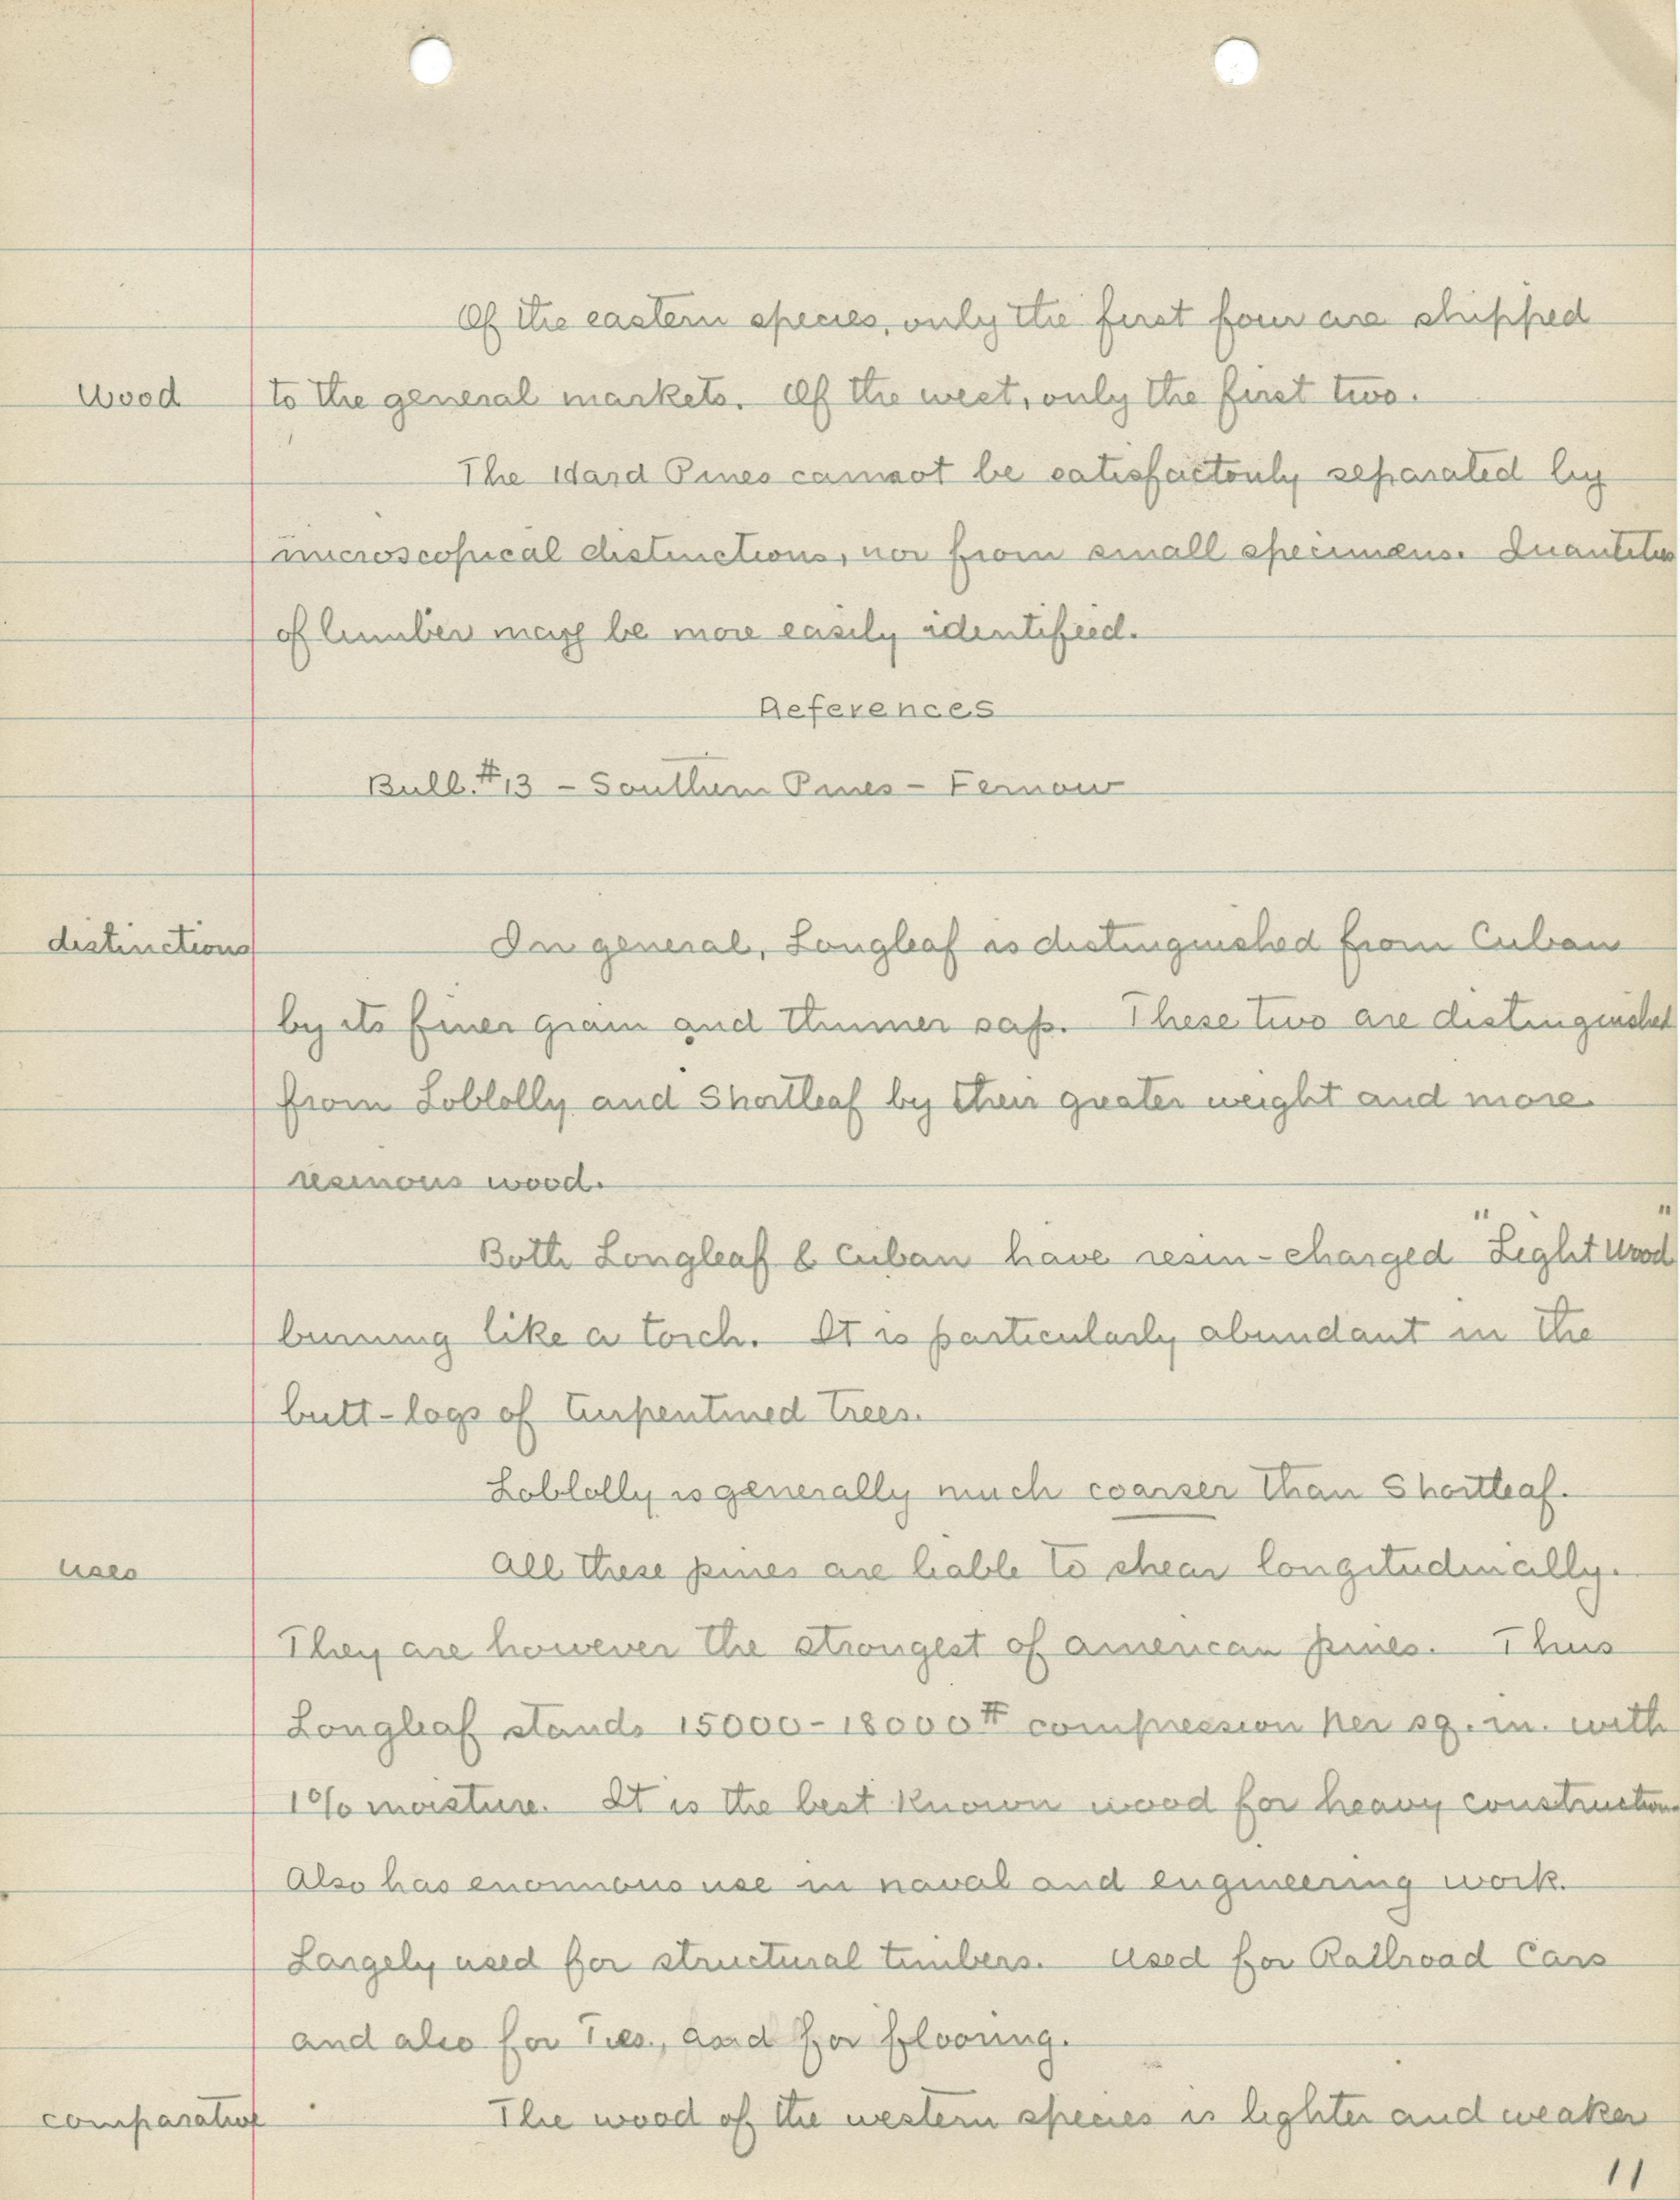 Of the eastern species, only the first four are shipped
Wood to the general markets. Of the west, only the first two.
The Hard Pines cannot be satisfactorily separated by
microscopical distinctions, nor from small specimens. Quantities
of lumber may be more easily identified.
References
Bull. #13 - Southern Pines - Fernow
distinctions In general, Longleaf is distinguished from Cuban
by its finer grain and thinner sap. These two are distinguished
from Loblolly and Shortleaf by their greater weight and more
resinous wood.
Both Longleaf & Cuban have resin-charged "Light Wood"
burning like a torch. It is particularly abundant in the
butt-logs of turpentined trees.
Loblolly is generally much coarser than Shortleaf.
uses All these pines are liable to shear longitudinally.
They are however the strongest of american pines. Thus
Longleaf stands 15000-18000# compression per sq. in. with
1% moisture. It is the best known wood for heavy construction
Also has enormous use in naval and engineering work.
Largely used for structural timbers. Used for Railroad Cars
and also for Ties, and for flooring.
comparative The wood of the western species is lighter and weaker
11